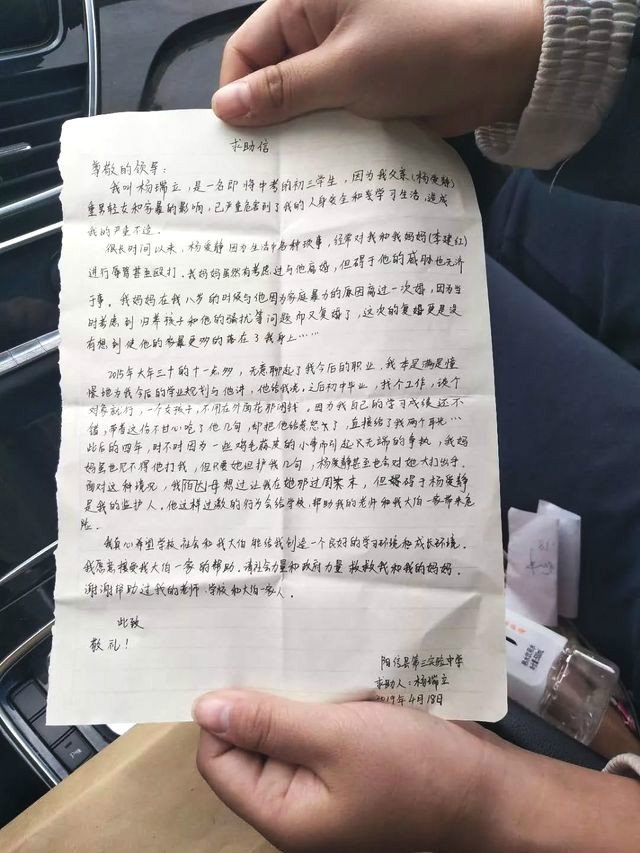 求助信
尊敬的领导：
我叫杨瑞立，是一名即将中考的初三学生，因为我父亲（杨爱静）
重男轻女和家暴的影响，已严重危害到了我的人身安全和学习生活，造成
我的严重不适。
很长时间以来，杨爱静因为生活中各种琐事，经常对我和我妈妈（李建红）
进行辱骂甚至殴打。我妈妈虽然有考虑过与他离婚，但碍于他的威胁也无济
于事。我妈妈在我八岁的时候与他因为家庭暴力的原因离过一次婚，因为当
时考虑到归养孩子和他的骚扰等问题而又复婚了，这次的复婚更是没
有想到使他的家暴更多的落在了我身上……
2015年大年三十的十一点多，无意聊起了我今后的职业，我本是满是憧
憬地为我今后的学业规划与他讲，他给我说：之后初中毕业，找个工作，谈个
对象就行，一个女孩子，不用在外面花那闲钱。因为我自己的学习成绩还不
错，带着这份不甘心呛了他几句，却把他给惹怒了，直接给了我两个耳光…
此后的四年，时不时因为一些鸡毛蒜皮的小事而引起又无端的争执，我妈
妈虽也见不得他打我，但只要她袒护我几句，杨爱静甚至也会对她大打出手。
面对这种境况，我伯母想过让我在她那过周末，但碍于杨爱静
是我的监护人。他这样过激的行为会给学校、帮助我的老师和我大伯一家带来危
险。
我真心希望学校、社会和我大伯能给我创造一个良好的学习环境和成长环境。
我愿意接受我大伯一家的帮助。请社会力量和政府力量救救我和我的妈妈。
谢谢帮助过我的老师、学校和大伯一家人。
此致
敬礼！
阳信县第三实验中学
求助人：杨瑞立
2019年4月18日